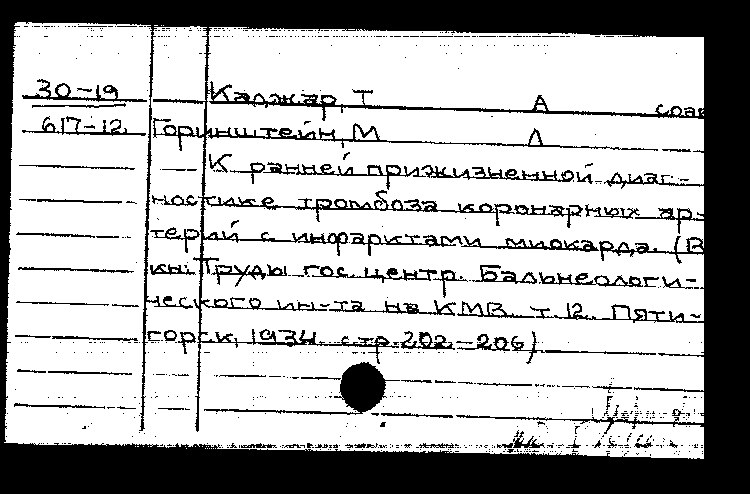 30-19 Каджар, Т А соав
617-12 Горинштейн, М Л
К ранней прижизненной диаг-
ностике тромбоза коронарных ар-
терий с инфарктами миокарда. (В
кн: Труды гос. центр. Бальнеологи-
ческого ин-та на КМВ. т. 12. Пяти-
горск, 1934. стр. 202-206)